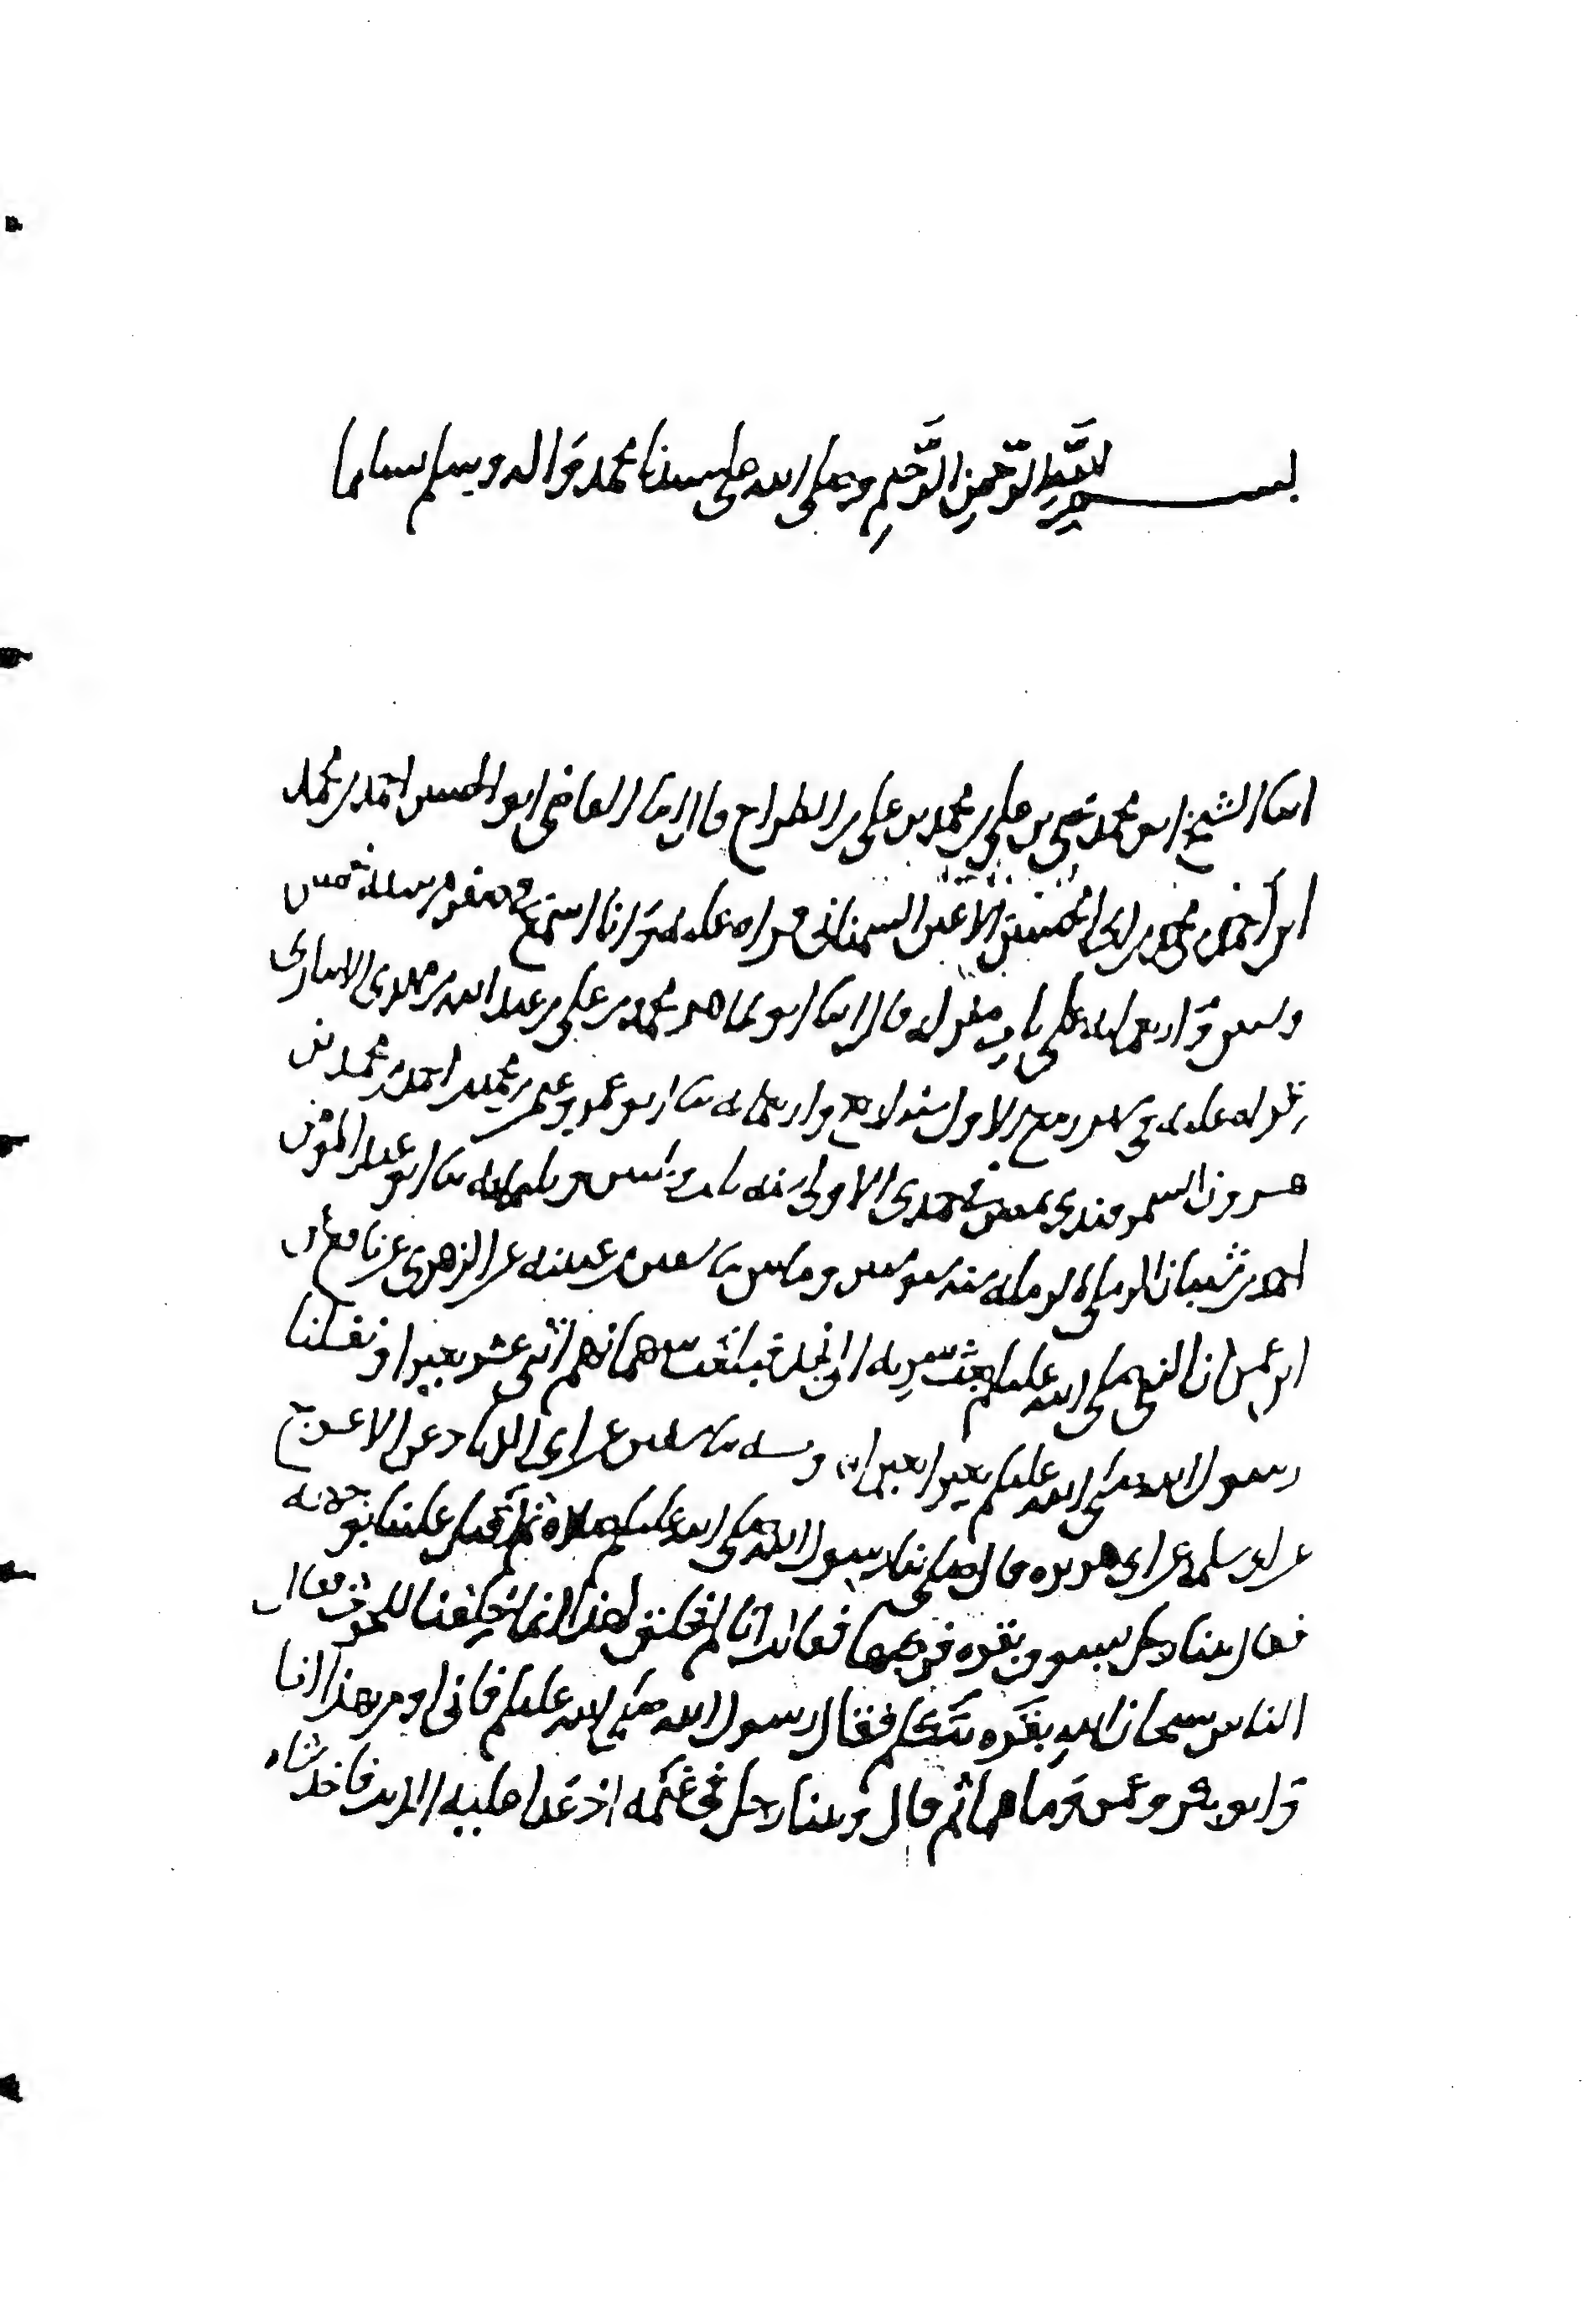 بسم الله الرحمن الرحيم وصلى الله على سيدنا محمد واله وسلم تسليما
انبانا الشيخ ابو محمد يحيى بن علي بن محمد بن علي بن الطراح قال انبانا القاضي ابو الحسين احمد بن محمد
ابن احمد بن محمد السمناني قراه عليه وانا اسمع في صفر من سنه خمس
وستين واربعمايه على باب منزله قال انبانا ابو طاهر محمد بن علي بن عبد الله بن مهدي الانباري
قراه عليه في شهر ربيع الاول سنه واربعمايه ثنا ابو عمرو احمد بن محمد بن
هرون السمرقندي جمدى الاولى سنه وثلثمايه ثنا ابو عبد المؤمن
احمد بن شيبان الرملي بالرمله سنه وستين ومائتين ثنا سفين بن عيينه عن الزهري عن نافع عن
ابن عمر ان النبي صلى الله عليه وسلم بعث سريه الى نجد فبلغت سهمانهم اثني عشر بعيرا ونفلنا
رسول الله صلى الله عليه وسلم بعيرا بعيرا وبه ثنا سفين عن ابي الزناد عن الاعرج
عن ابي سلمه عن ابي هريره قال صلى بنا رسول الله صلى الله عليه وسلم صلاه ثم اقبل علينا بوجهه
فقال بينا رجل يسوق بقره فركبها فقالت انا لم نخلق لهذا انما خلقنا للحرث فقال
الناس سبحان الله بقره تتكلم فقال رسول الله صلى الله عليه وسلم فاني اومن بهذا انا
وابو بكر وعمر وما هما ثم قال وبينا رجل في غنمه اذ عدا عليه الذيب فاخذ شاه